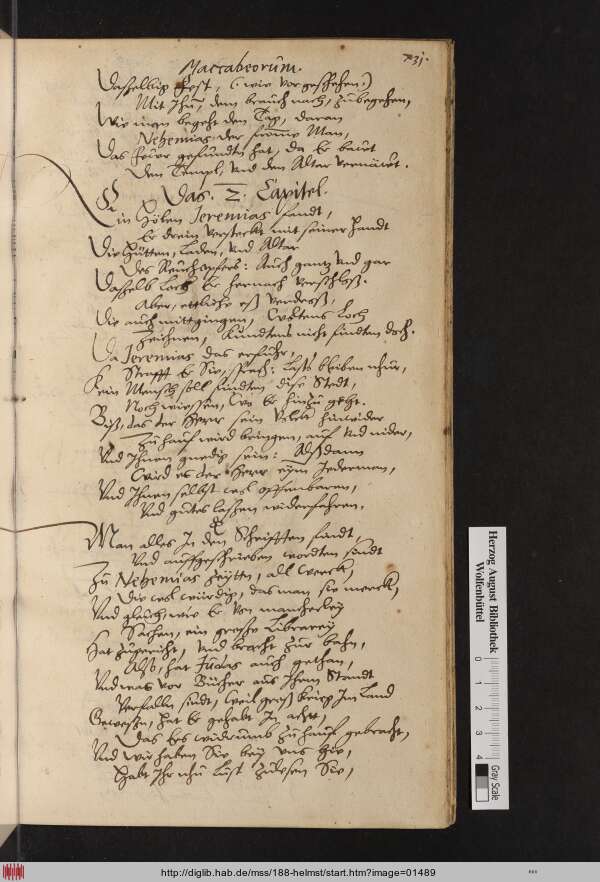 731.
Maccabeorum.
Dasselbig Fest, (: wie vorgeschehen:)
Mit Ihn, dem brauch nach, zu begehen,
Wie man begeht den Tag, daran
Nehemias der fromme Man,
Das feür gefunden hat, da Er bauet
Den Templ, und den Altar vernäuet.
Das. 2. Capitel.
Ein Hölen Jeremias fandt,
Er drein versteckt mit seiner Handt
Die Hütten, Laden, und Altar
Des Reuchopfers: Auch gantz und gar
Dasselb Loch Er hernach verschloß.
Aber, ettliche eß verdroß,
Die auch mittgingen, Wolltens Loch
Zeichnen, Kundtens nicht finden doch.
Da Jeremias das erfuhr,
Strafft Er Sie, sprach: Lasts bleiben nhur,
Kein Mensch soll finden dise Stedt,
Noch wissen, Wo Er hinzu geht.
Biß, das der Herr sein Volck hinwider
Zu hauf wird bringen, auf und nider,
Und Ihnen gnedig sein: Alßdann
Wird es der Herr eim Jederman,
Und Ihnen selbst wol offenbaren,
Und gutes lassen widerfahren.
Man alles In den Schrifften findt,
Und auffgeschrieben worden sindt
Zu Nehemias Zeytten, all werck,
Die wol würdig, das man sie merck,
Und gleich, wie Er von mancherley
Sachen, ein grosse Librarey
Hat zugericht, und bracht zur bahn,
Also, hat Judas auch gethan,
Und was vor Bücher aus Ihrem Standt
Verfalln sindt, Weil groß krieg Im Land
Gewesen, hat Er gehabt In acht,
Das Ers widerumb zu hauf gebracht,
Und wir haben Sie bey uns hie,
Habt Ihr nhu lust zulesen Sie,
Herzog August Bibliothek
Wolfenbüttel
0 1 2 3 4
Gray Scale
http://diglib.hab.de/mss/188-helmst/start.htm?image=01489